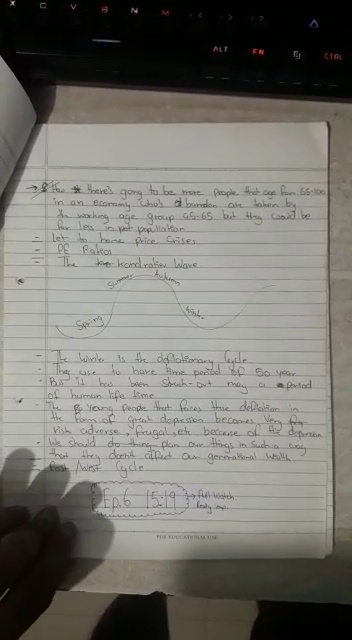 X C V B N M < > ?
ALT FN CTRL
there's going to be more people that age from 55-100
in an economy who's burden are taken by
the working age group 45-65 but they would be
far less in population
= let to home price crises
= PE Ratios
= The kondratiev Wave
Summer Autumn
Spring
- The Winter is the deflationary Cycle
- They use to have time period of 50 year
- But it has been streach-out may a period
of human life time
- The young people that faces those deflation in
the form of great depression becomes very
risk adverse, frugal, etc because of the depression
- We should do thing plan our things in such a way
that they doesn't affect our generational wealth
- East/West Cycle
Ep.6 15:19 → Full Watch
Really imp.
FOR EDUCATIONAL USE